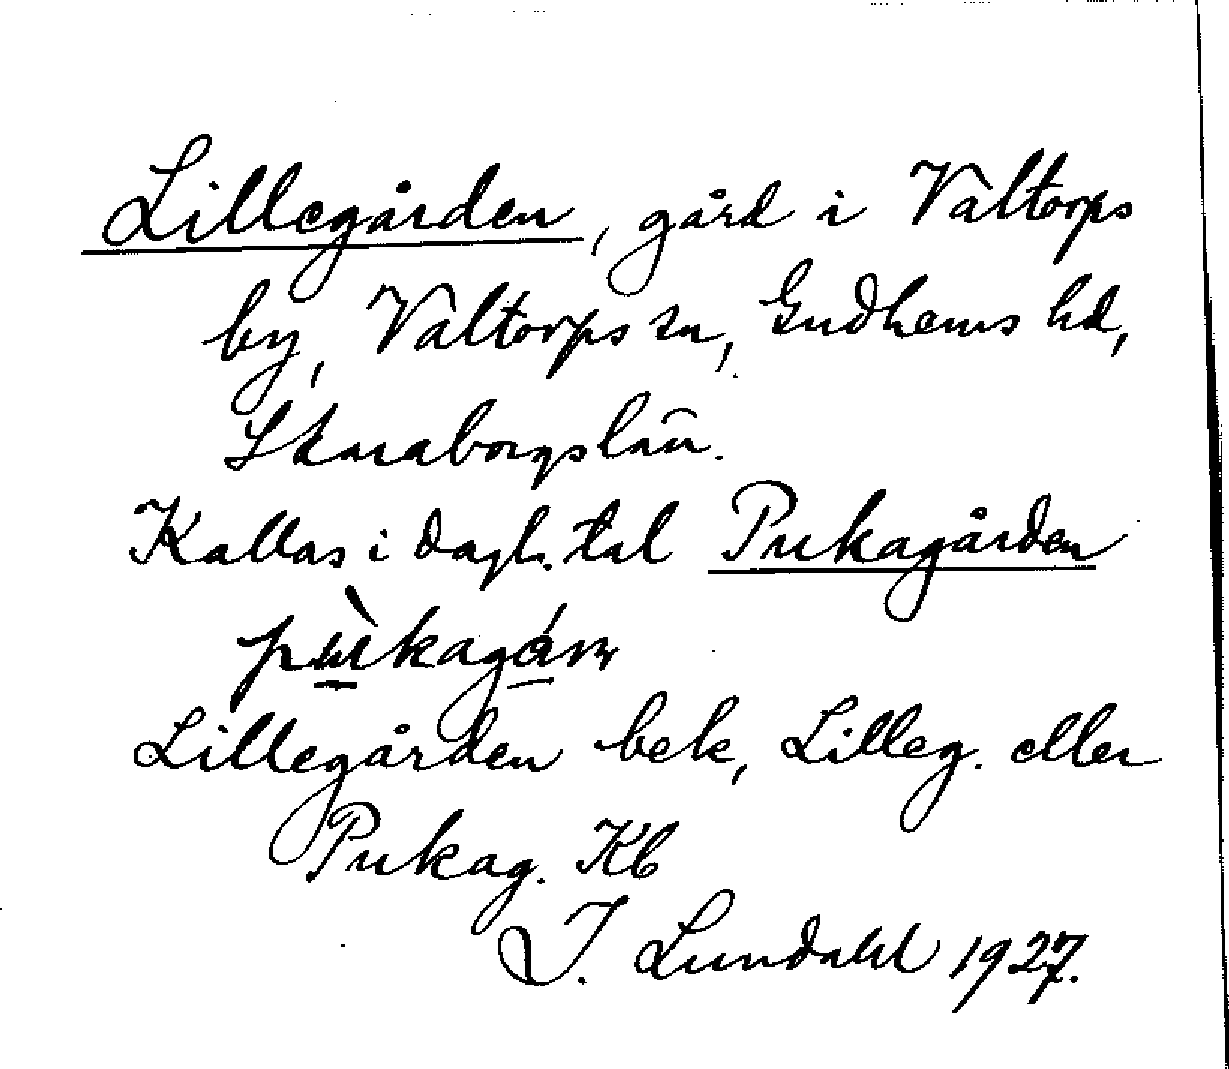 Lillegården, gård i Valtorps
by, Valtorps sn, Gudhems hd,
Skaraborgs län.
Kallas i dagl. tal Pukagården
pùkagárn
Lillegården bek, Lilleg. eller
Pukag. Kb
I. Lundahl 1927.